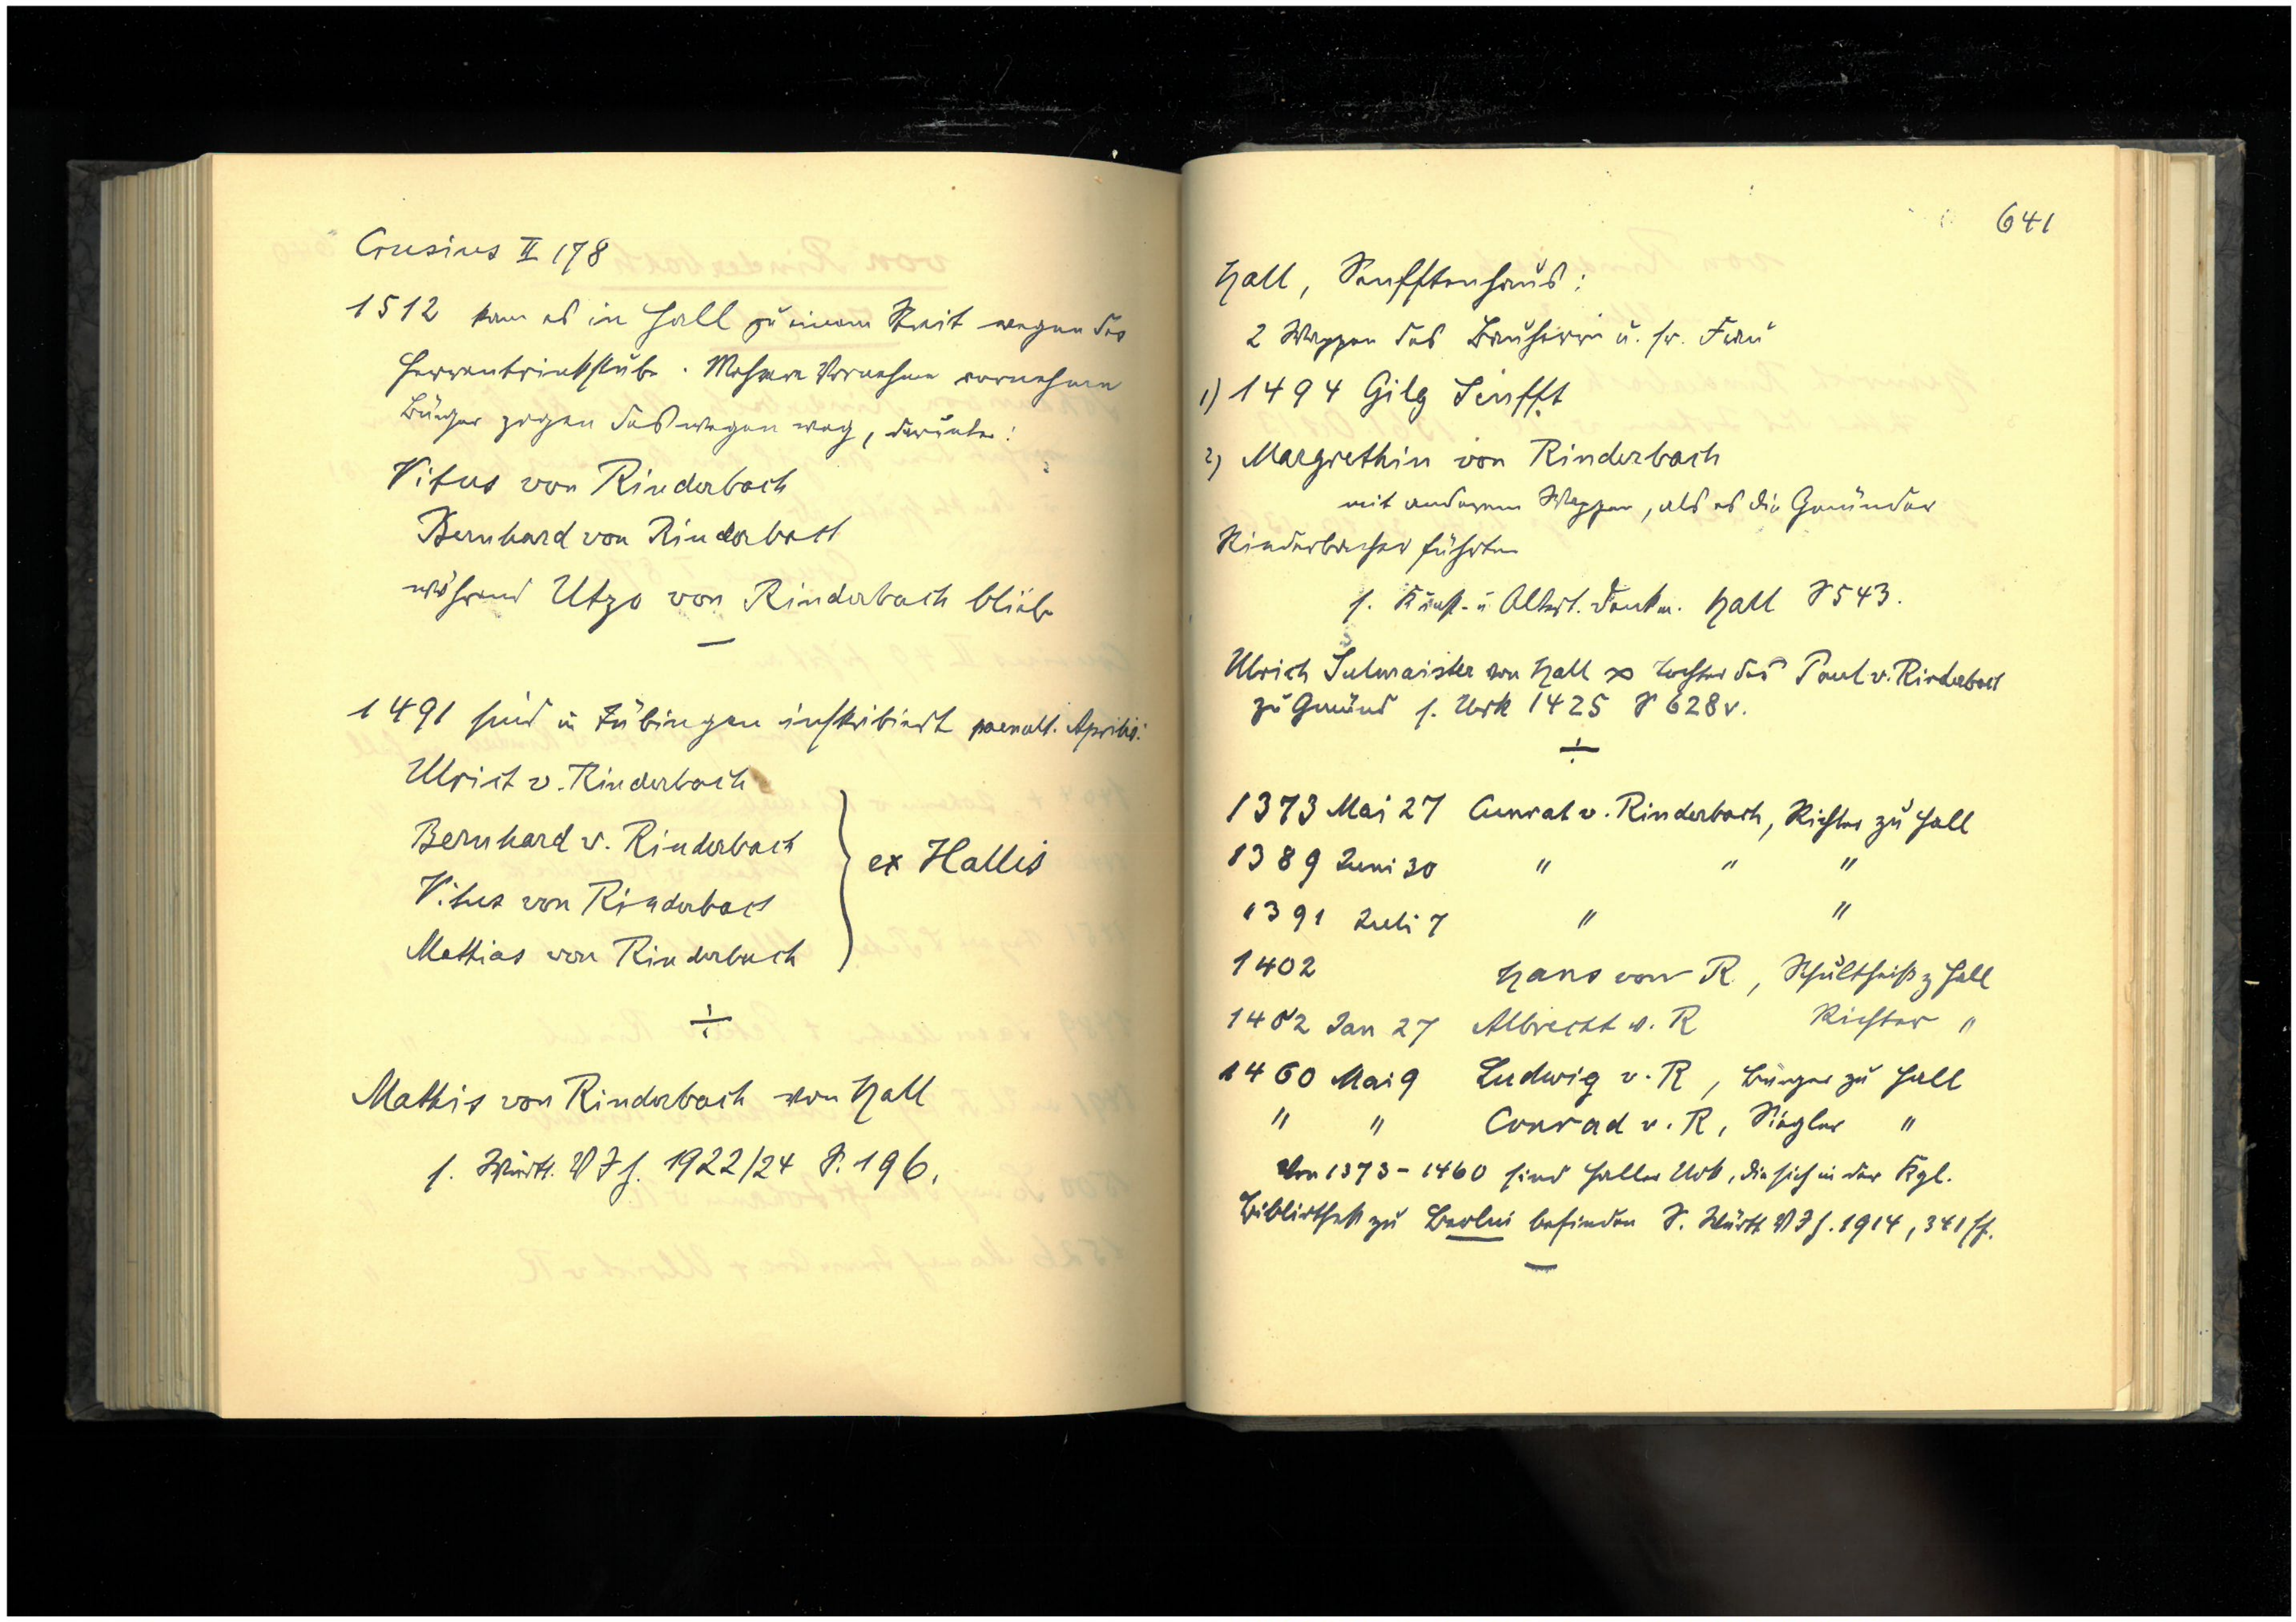 Crusius II 178
1512 kam es in Hall zu einem Streit wegen der
Herrentrinkstube. Mehrere Vornehme vornehme
Bürger zogen deswegen weg, darunter:
Vitus von Rinderbach
Bernhard von Rinderbach
während Utzo von Rinderbach blieb
—
1491 sind in Tübingen inskribiert paenult. Aprilis:
Ulrich v. Rinderbach
Bernhard v. Rinderbach
Vitus von Rinderbach
Mathias von Rinderbach
ex Hallis
÷
Mathis von Rinderbach von Hall
s. Württ. VJh. 1922/24 S. 196.
641
Hall, Senfftenhaus:
2 Wappen des Bauherrn u. sr. Frau
1) 1494 Gilg Senfft
2) Margrethin von Rinderbach
mit anderem Wappen, als es die Gmünder
Rinderbacher führten
s. Kunst- u Altert. Denkm. Hall S 543.
Ulrich Sulmaister von Hall ∞ Tochter des Paul v. Rinderbach
zu Gmünd s. Urk 1425 S 628v.
÷
1373 Mai 27 Cunrat v. Rinderbach, Richter zu Hall
1389 Juni 30 " " "
1391 Juli 7 " "
1402 Hans von R, Schultheiß z Hall
1402 Jan 27 Albrecht v. R Richter "
1460 Mai 9 Ludwig v. R, Bürger zu Hall
" " Conrad v. R, Siegler "
Von 1373-1460 sind Haller Urk, die sich in der Kgl.
Bibliothek zu Berlin befinden S. Württ VJh. 1914, 341 ff.
—